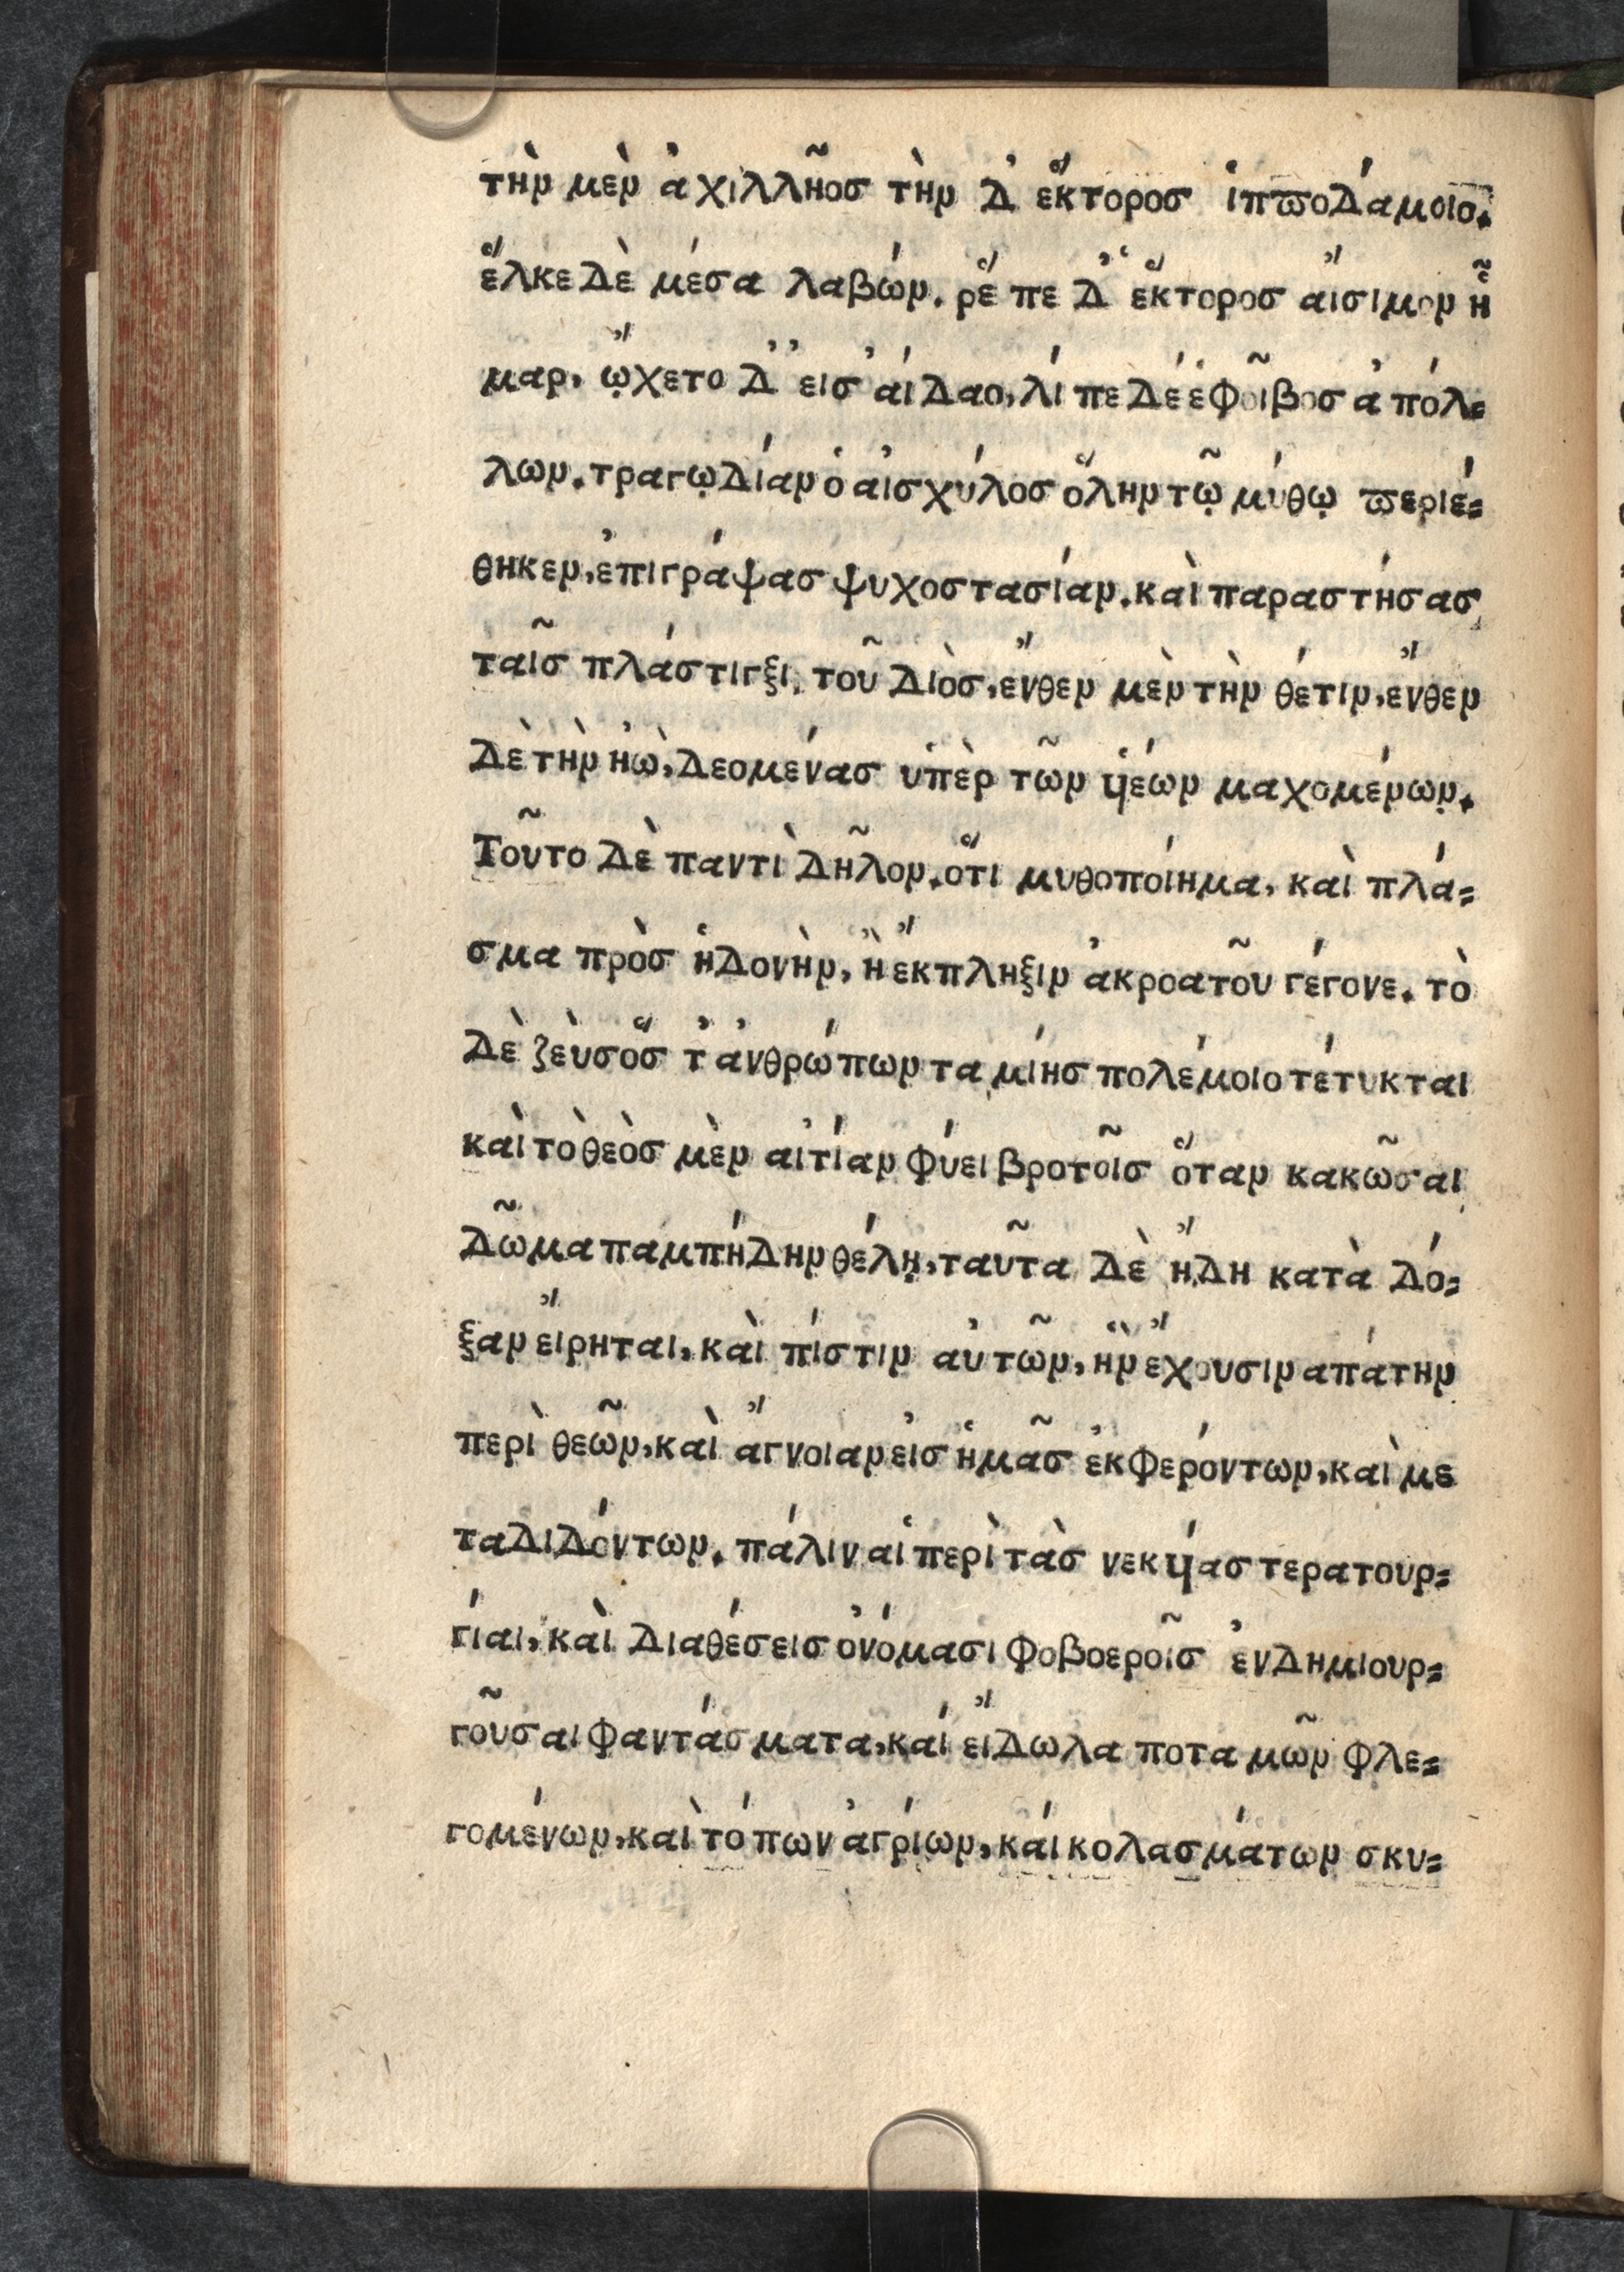 τὴν μὲν ἀχιλλῆοσ τὴν δ̓ ἕκτοροσ ἱπποδάμοισ.
ἕλκε δὲ μέσα λαβών. ῥέ πε δ̓ ἕκτοροσ αἴσιμον ἦ
μαρ, ᾤχετο δ̓ εἰσ ἀίδαο, λί πε δέ ἑ φοῖβοσ ἀπόλ=
λων. τραγῳδίαν ὁ αἰσχύλοσ ὅλην τῷ μύθῳ περιέ=
θηκεν, ἐπιγράψασ ψυχοστασίαν. καὶ παραστήσασ
ταῖσ πλάστιγξι, τοῦ Διὸσ, ἔνθεν μὲν τὴν θέτιν, ἔνθεν
δὲ τὴν ἠὼ, δεομένασ ὑπὲρ τῶν ὑιέων μαχομένων.
Τοῦτο δὲ παντὶ δῆλον. ὅτι μυθοποίημα, καὶ πλά=
σμα πρὸσ ἡδονὴν, ἢ ἔκπληξιν ἀκροατοῦ γέγονε. τὸ
δὲ ζὲυσ ὅσ τ̓ ἀνθρώπων ταμίησ πολέμοιο τέτυκται
καὶ τὸ θεὸσ μὲν αἰτίαν φύει βροτοῖσ ὅταν κακῶσαι
δῶμα παμπήδην θέλῃ, ταῦτα δὲ ἤδη κατὰ δό=
ξαν εἴρηται, καὶ πίστιν ἀυτῶν, ἣν ἔχουσιν απάτην
περὶ θεῶν, καὶ ἄγνοιαν εἰσ ἡμᾶσ ἐκφερόντων, καὶ με
ταδιδόντων. πάλιν αἱ περὶ τὰσ νεκύιασ τερατουρ=
γίαι, καὶ διαθέσεισ ὀνόμασι φοβοεροῖσ ἐνδημιουρ=
γοῦσαι φαντάσματα, καί εἴδωλα ποταμῶν φλε=
γομένων, καὶ τόπων ἀγρίων, καί κολασμάτων σκυ=